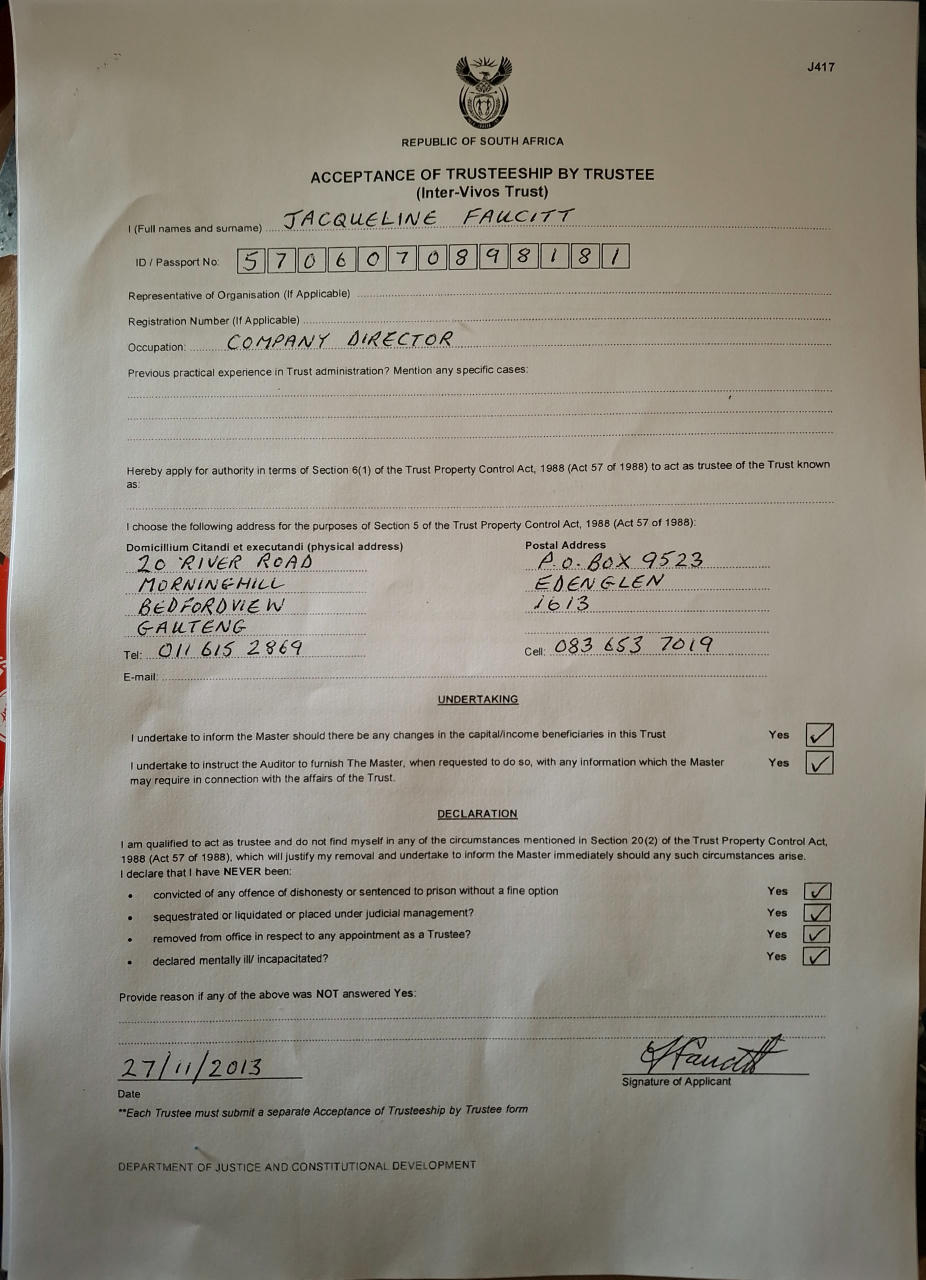 J417
REPUBLIC OF SOUTH AFRICA
ACCEPTANCE OF TRUSTEESHIP BY TRUSTEE
(Inter-Vivos Trust)
I (Full names and surname) JACQUELINE FAUCITT
ID / Passport No: 5706070898181
Representative of Organisation (If Applicable)
Registration Number (If Applicable)
Occupation: COMPANY DIRECTOR
Previous practical experience in Trust administration? Mention any specific cases:
Hereby apply for authority in terms of Section 6(1) of the Trust Property Control Act, 1988 (Act 57 of 1988) to act as trustee of the Trust known
as:
I choose the following address for the purposes of Section 5 of the Trust Property Control Act, 1988 (Act 57 of 1988):
Domicillium Citandi et executandi (physical address) Postal Address
20 RIVER ROAD P.O. BOX 9523
MORNINGHILL EDENGLEN
BEDFORDVIEW 1613
GAUTENG
Tel: 011 615 2869 Cell: 083 653 7019
E-mail:
UNDERTAKING
I undertake to inform the Master should there be any changes in the capital/income beneficiaries in this Trust Yes ✓
I undertake to instruct the Auditor to furnish The Master, when requested to do so, with any information which the Master Yes ✓
may require in connection with the affairs of the Trust.
DECLARATION
I am qualified to act as trustee and do not find myself in any of the circumstances mentioned in Section 20(2) of the Trust Property Control Act,
1988 (Act 57 of 1988), which will justify my removal and undertake to inform the Master immediately should any such circumstances arise.
I declare that I have NEVER been:
• convicted of any offence of dishonesty or sentenced to prison without a fine option Yes ✓
• sequestrated or liquidated or placed under judicial management? Yes ✓
• removed from office in respect to any appointment as a Trustee? Yes ✓
• declared mentally ill/ incapacitated? Yes ✓
Provide reason if any of the above was NOT answered Yes:
27/11/2013 JFaucitt
Date Signature of Applicant
**Each Trustee must submit a separate Acceptance of Trusteeship by Trustee form
DEPARTMENT OF JUSTICE AND CONSTITUTIONAL DEVELOPMENT